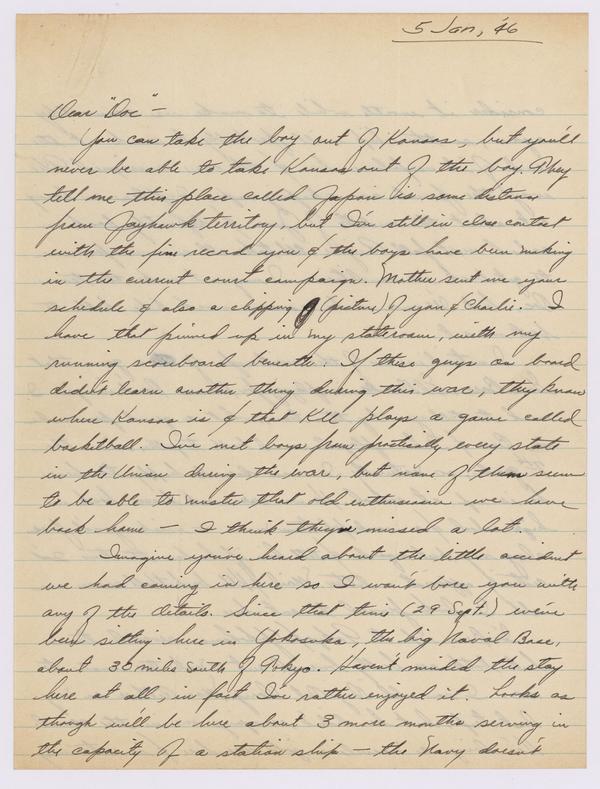 5 Jan, '46
Dear "Doc" —
You can take the boy out of Kansas, but you'll
never be able to take Kansas out of the boy. They
tell me this place called Japan is some distance
from Jayhawk territory, but I'm still in close contact
with the fine record you & the boys have been making
in the current court campaign. Mother sent me your
schedule & also a clipping (picture) of you & Charlie. I
have that pinned up in my stateroom, with my
running scoreboard beneath. If these guys on board
didn't learn another thing during this war, they know
where Kansas is & that KU plays a game called
basketball. I've met boys from practically every state
in the Union during the war, but none of them seem
to be able to muster that old enthusiasm we have
back home — I think they've missed a lot.
Imagine you've heard about the little accident
we had coming in here so I wont bore you with
any of the details. Since that time (29 Sept.) we've
been sitting here in Yokosuka, the big Naval Base,
about 30 miles south of Tokyo. Haven't minded the stay
here at all, in fact I've rather enjoyed it. Looks as
though we'll be here about 3 more months serving in
the capacity of a station ship — the Navy doesn't